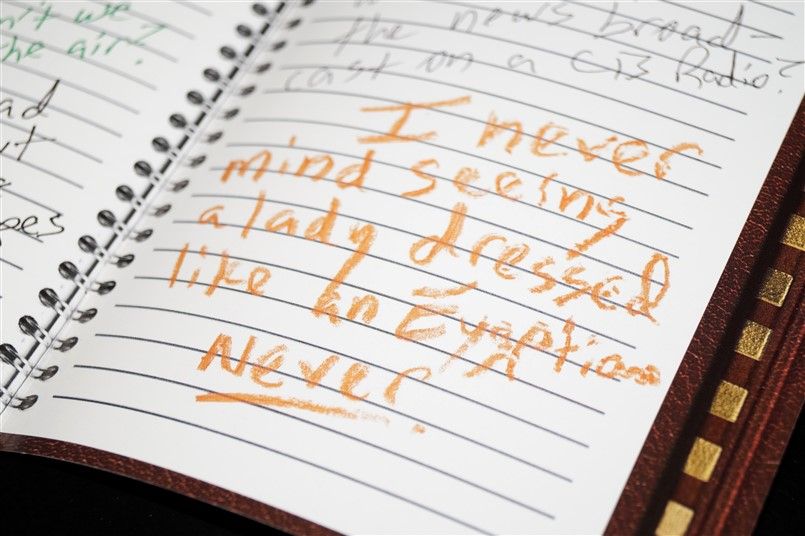 n't we
he air?
ad
the news broad-
cast on a CB Radio?
I never
mind seeing
a lady dressed
like an Eygptian
Never.